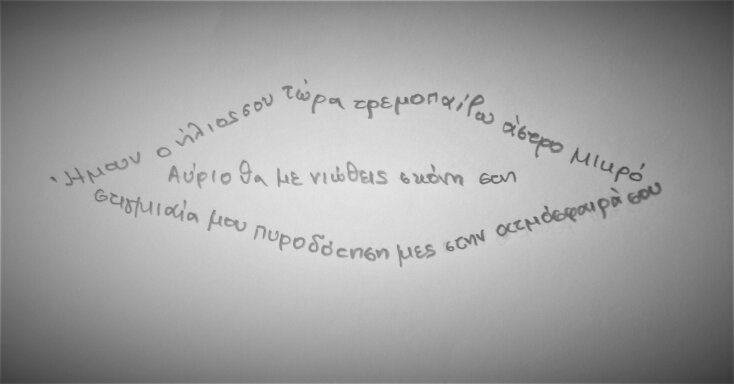 Ήμουν ο ήλιος σου τώρα τρεμοπαίζω άστρο μικρό
Αύριο θα με νιώθεις σκόνη στη
στιγμιαία μου πυροδότηση μες στην ατμόσφαιρά σου